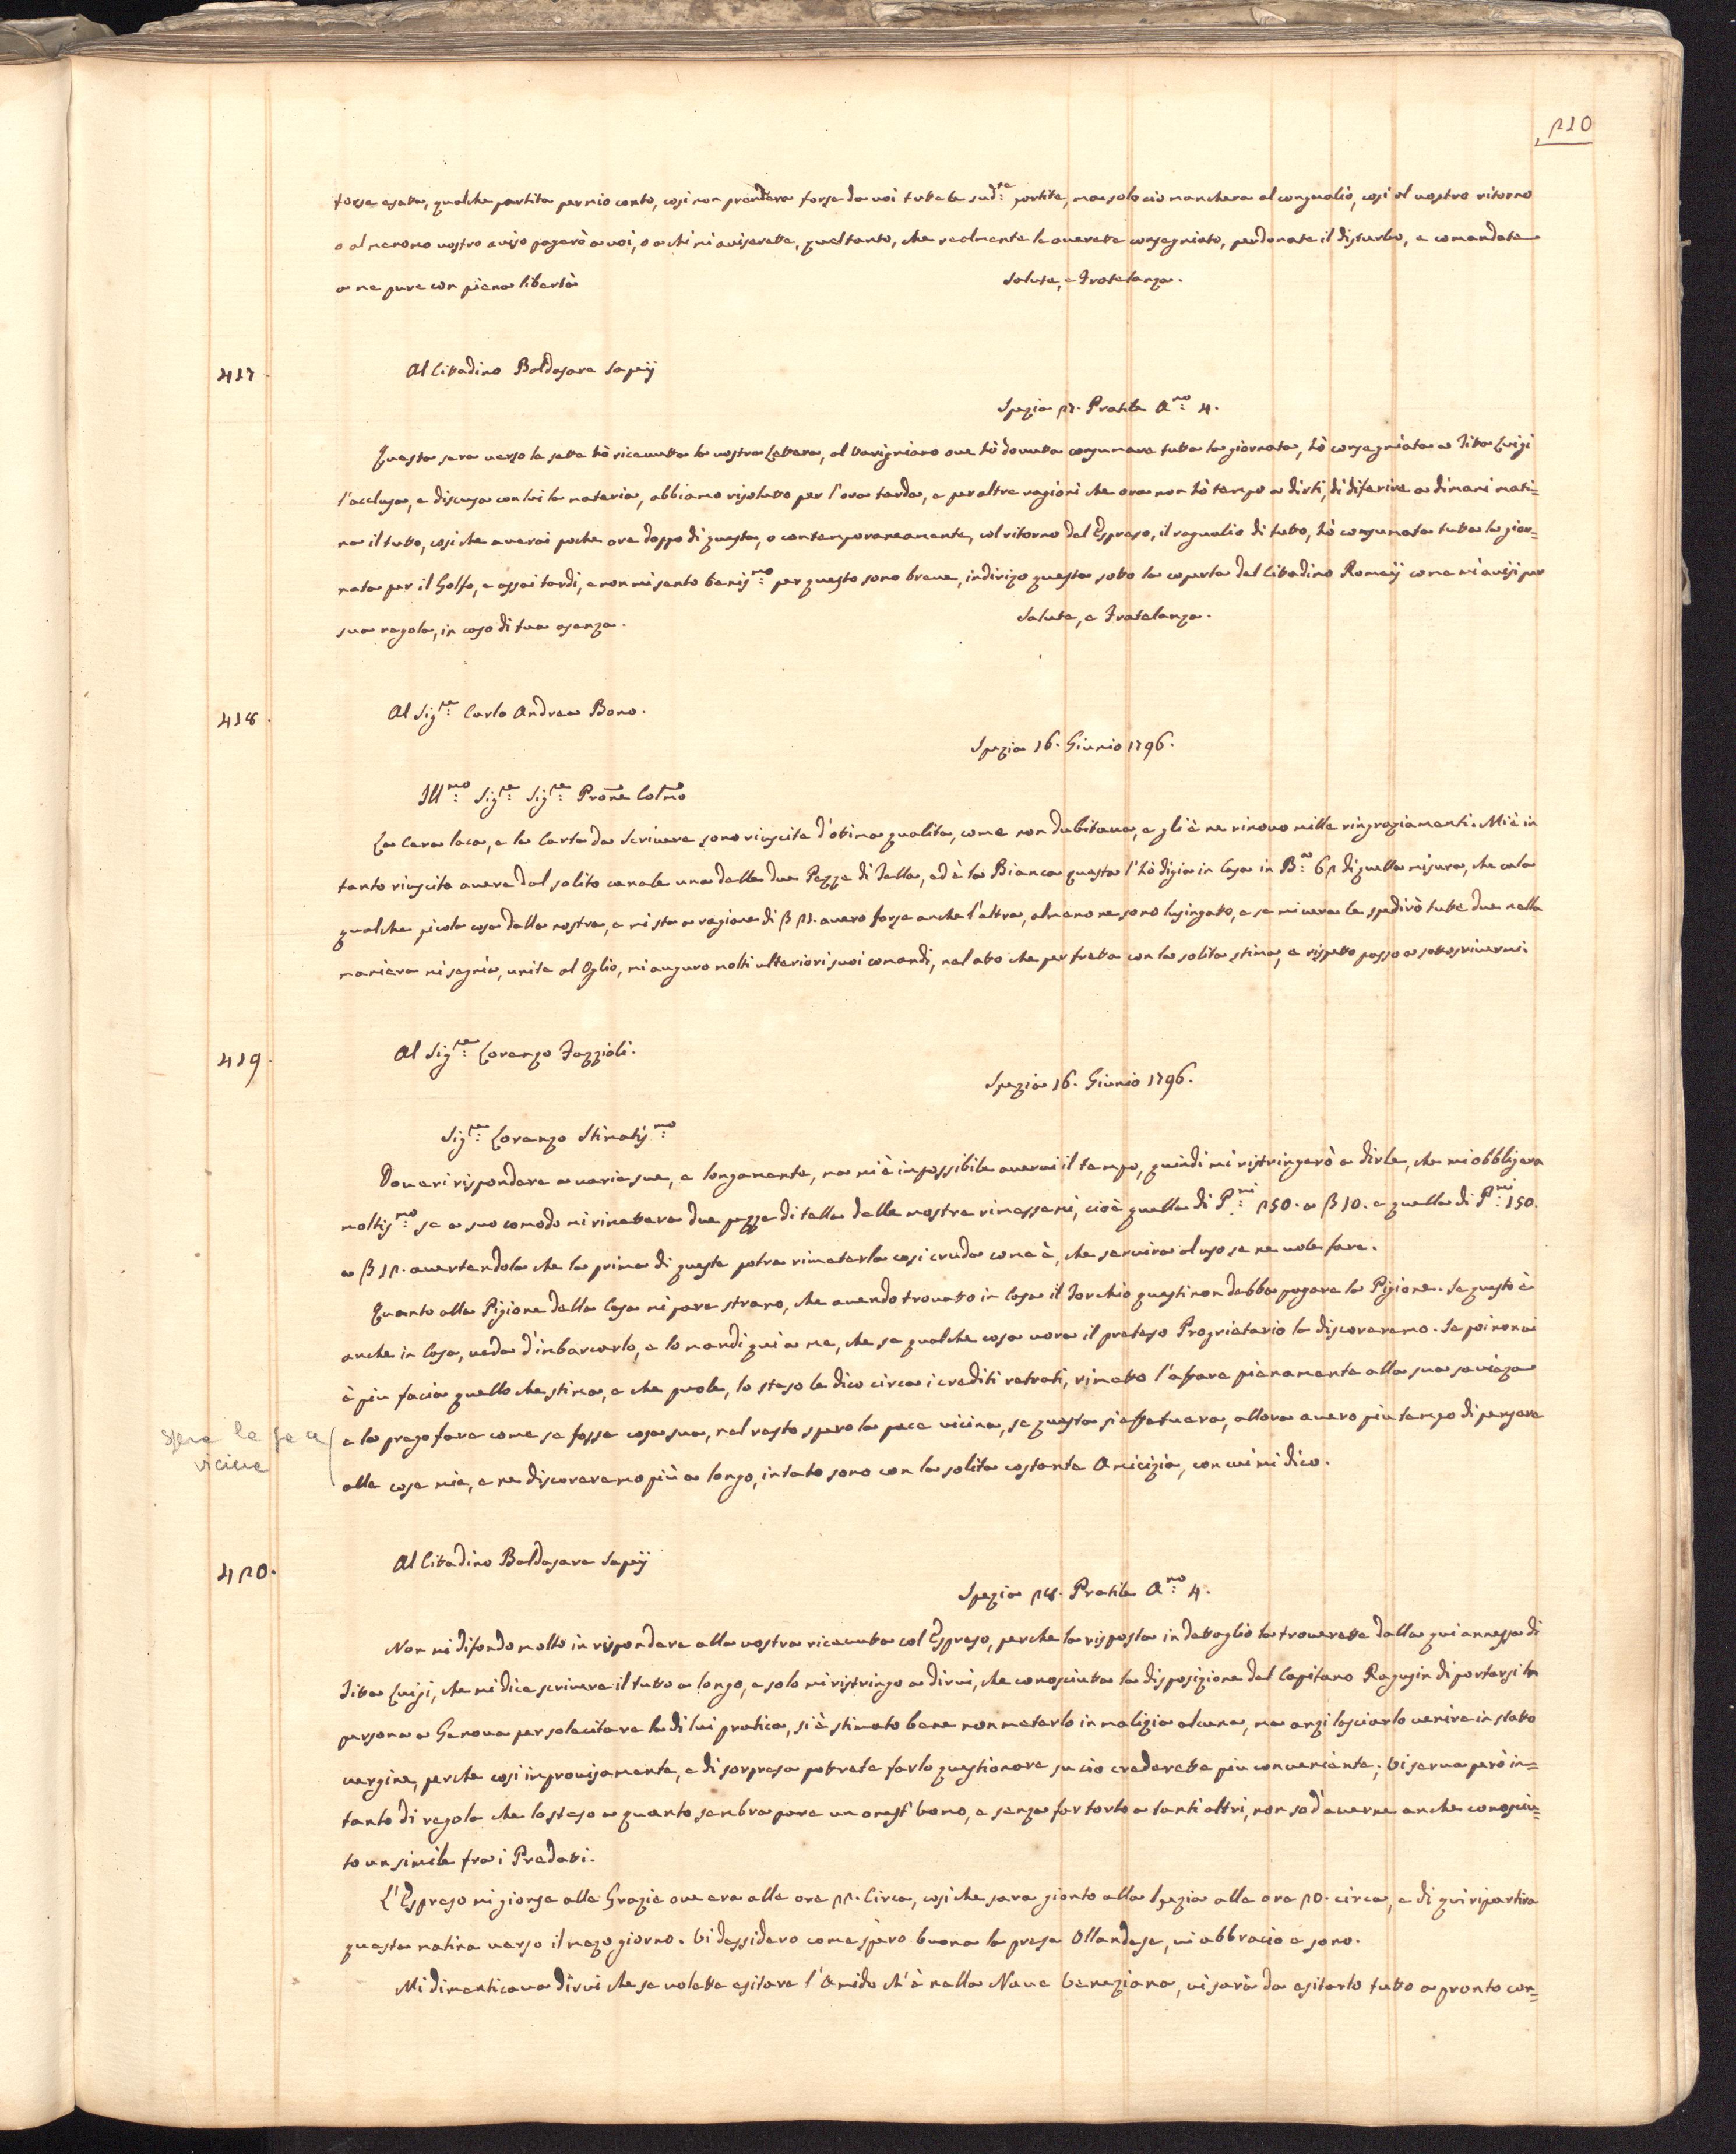 210
forse esatta, qualche partita per mio conto, cosi non prendera forse da voi tutte le sud:te partite, ma solo ciò manchera al conguaglio, cosi al vostro ritorno
o al menomo vostro aviso pagerò a voi, o a chi mi aviserete, quel tanto, che realmente le averete consegniato, perdonate il disturbo, e comandate
a me pure con piena libertà
Salute, e Fratelanza.
417.
Al Cittadino Baldasare Sapey
Spezia 27. Pratile A:no 4.
Questa sera verso le sette hò ricevuta la vostra Lettera, al Varigniano ove hò dovuta consumare tutta la giornata, hò consegniata a Titta Luigi
l'acclusa, e discusa con lui la materia, abbiamo risoluto per l'ora tarda, e per altre ragioni che ora non hò tempo a dirti, di diferire a dimani mati=
na il tutto, cosi che averai poche ore doppo di questa, o contemporaneamente, col ritorno del Espreso, il raguaglio di tutto, hò consumata tutta la gior=
nata per il Golfo, e assai tardi, e non mi sento benis:mo per questo sono breve, indirizo questa sotto la coperta del Cittadino Romeij come m'avisi per
sua regola, in caso di tua asenza.
Salute, e Fratelanza.
418.
Al Sig:re Carlo Andrea Bono.
Spezia 16. Giunio 1796.
Ill:mo Sig:re Sig:re Prone Colmo
La Cera laca, e la Carta da Scrivere sono riuscite d'ottima qualita, come non dubitava, e gliè ne rinovo mille ringraziamenti. Mi è in
tanto riuscito avere dal solito canale una delle due Pezze di Tella, ed è la Bianca questa l'hò digia in Casa in B:e 62 di quella misura, che cala
qualche picola cosa della nostra, e mi sta a ragione di β 21. avero forse anche l'altra, almeno ne sono lusingato, e se mi vera le spedirò tutte due nella
maniera mi segnia, unite al Oglio, mi auguro molti ulteriori suoi comandi, nel atto che per fretta con la solita stima, e rispetto passo a sottoscrivermi.
419.
Al Sig:re Lorenzo Fazzioli.
Spezia 16. Giunio 1796.
Sig:re Lorenzo Stimatis:mo
Doverei rispondere a varie sue, e longamente, ma mi è impossibile avervi il tempo, quindi mi ristringerò a dirle, che mi obbligera
moltis:mo se a suo comodo mi rimettera due pezze di tella delle mostre rimessemi, cioè quella di P:mi 250. a β 10. e quella di P:mi 150.
a β 12. avertendola che la prima di queste potra rimeterla cosi cruda come è, che servira al uso se ne vole fare.
Quanto alla Pigione della Casa mi pare strano, che avendo trovato in Casa il Torchio questi non debba pagare la Pigione. Se questo è
anche in Casa, veda d'imbarcarlo, e lo mandi qui a me, che se qualche cosa vora il preteso Proprietario la discoreremo. Se poi non vi
è piu facia quello che stima, e che puole, lo steso le dico circa i crediti retrati, rimetto l'affare pienamente alla sua saviezza
e la prego fare come se fosse cosa sua, nel resto spero la pace vicina, se questa si effetuera, allora avero piu tempo di pensare
alle cose mie, e ne discoreremo più a longo, intato sono con la solita costante Amicizia, con cui mi dico.
spera la pace
vicina
420.
Al Cittadino Baldasare Sapey
Spezia 28. Pratile A:no 4.
Non mi difondo molto in rispondere alla vostra ricevuta col Espreso, perche la risposta in detaglio la troverete dalla qui annessa di
Titta Luigi, che mi dice scrivere il tutto a longo, e solo mi ristringo a dirvi, che conosciuta la disposizione del Capitano Ragusin di portarsi in
persona a Genova per solecitare la di lui pratica, si è stimato bene non meterlo in malizia alcuna, ma anzi lasciarlo venire in stato
vergine, perche cosi improvisamente, e di sorpresa potrete farlo questionare su ciò crederete piu conveniente; Vi serva però in=
tanto di regola che lo steso a quanto sembra pare un onest'Uomo, e senza far torto a tanti altri, non so d'averne anche conosciu=
to un simile fra i Predatti.
L'Espreso mi gionse alle Grazie ove era alle ore 22. Circa, cosi che sara gionto alla Spezia alle ore 20. circa, e di qui ripartira
questa matina verso il mezo giorno. Vi dessidero come spero buona la presa Ollandese, vi abbracio e sono.
Mi dimenticava dirvi che se volette esitare l'Amido ch'è nella Nave Veneziana, vi sarà da esitarlo tutto a pronto con=